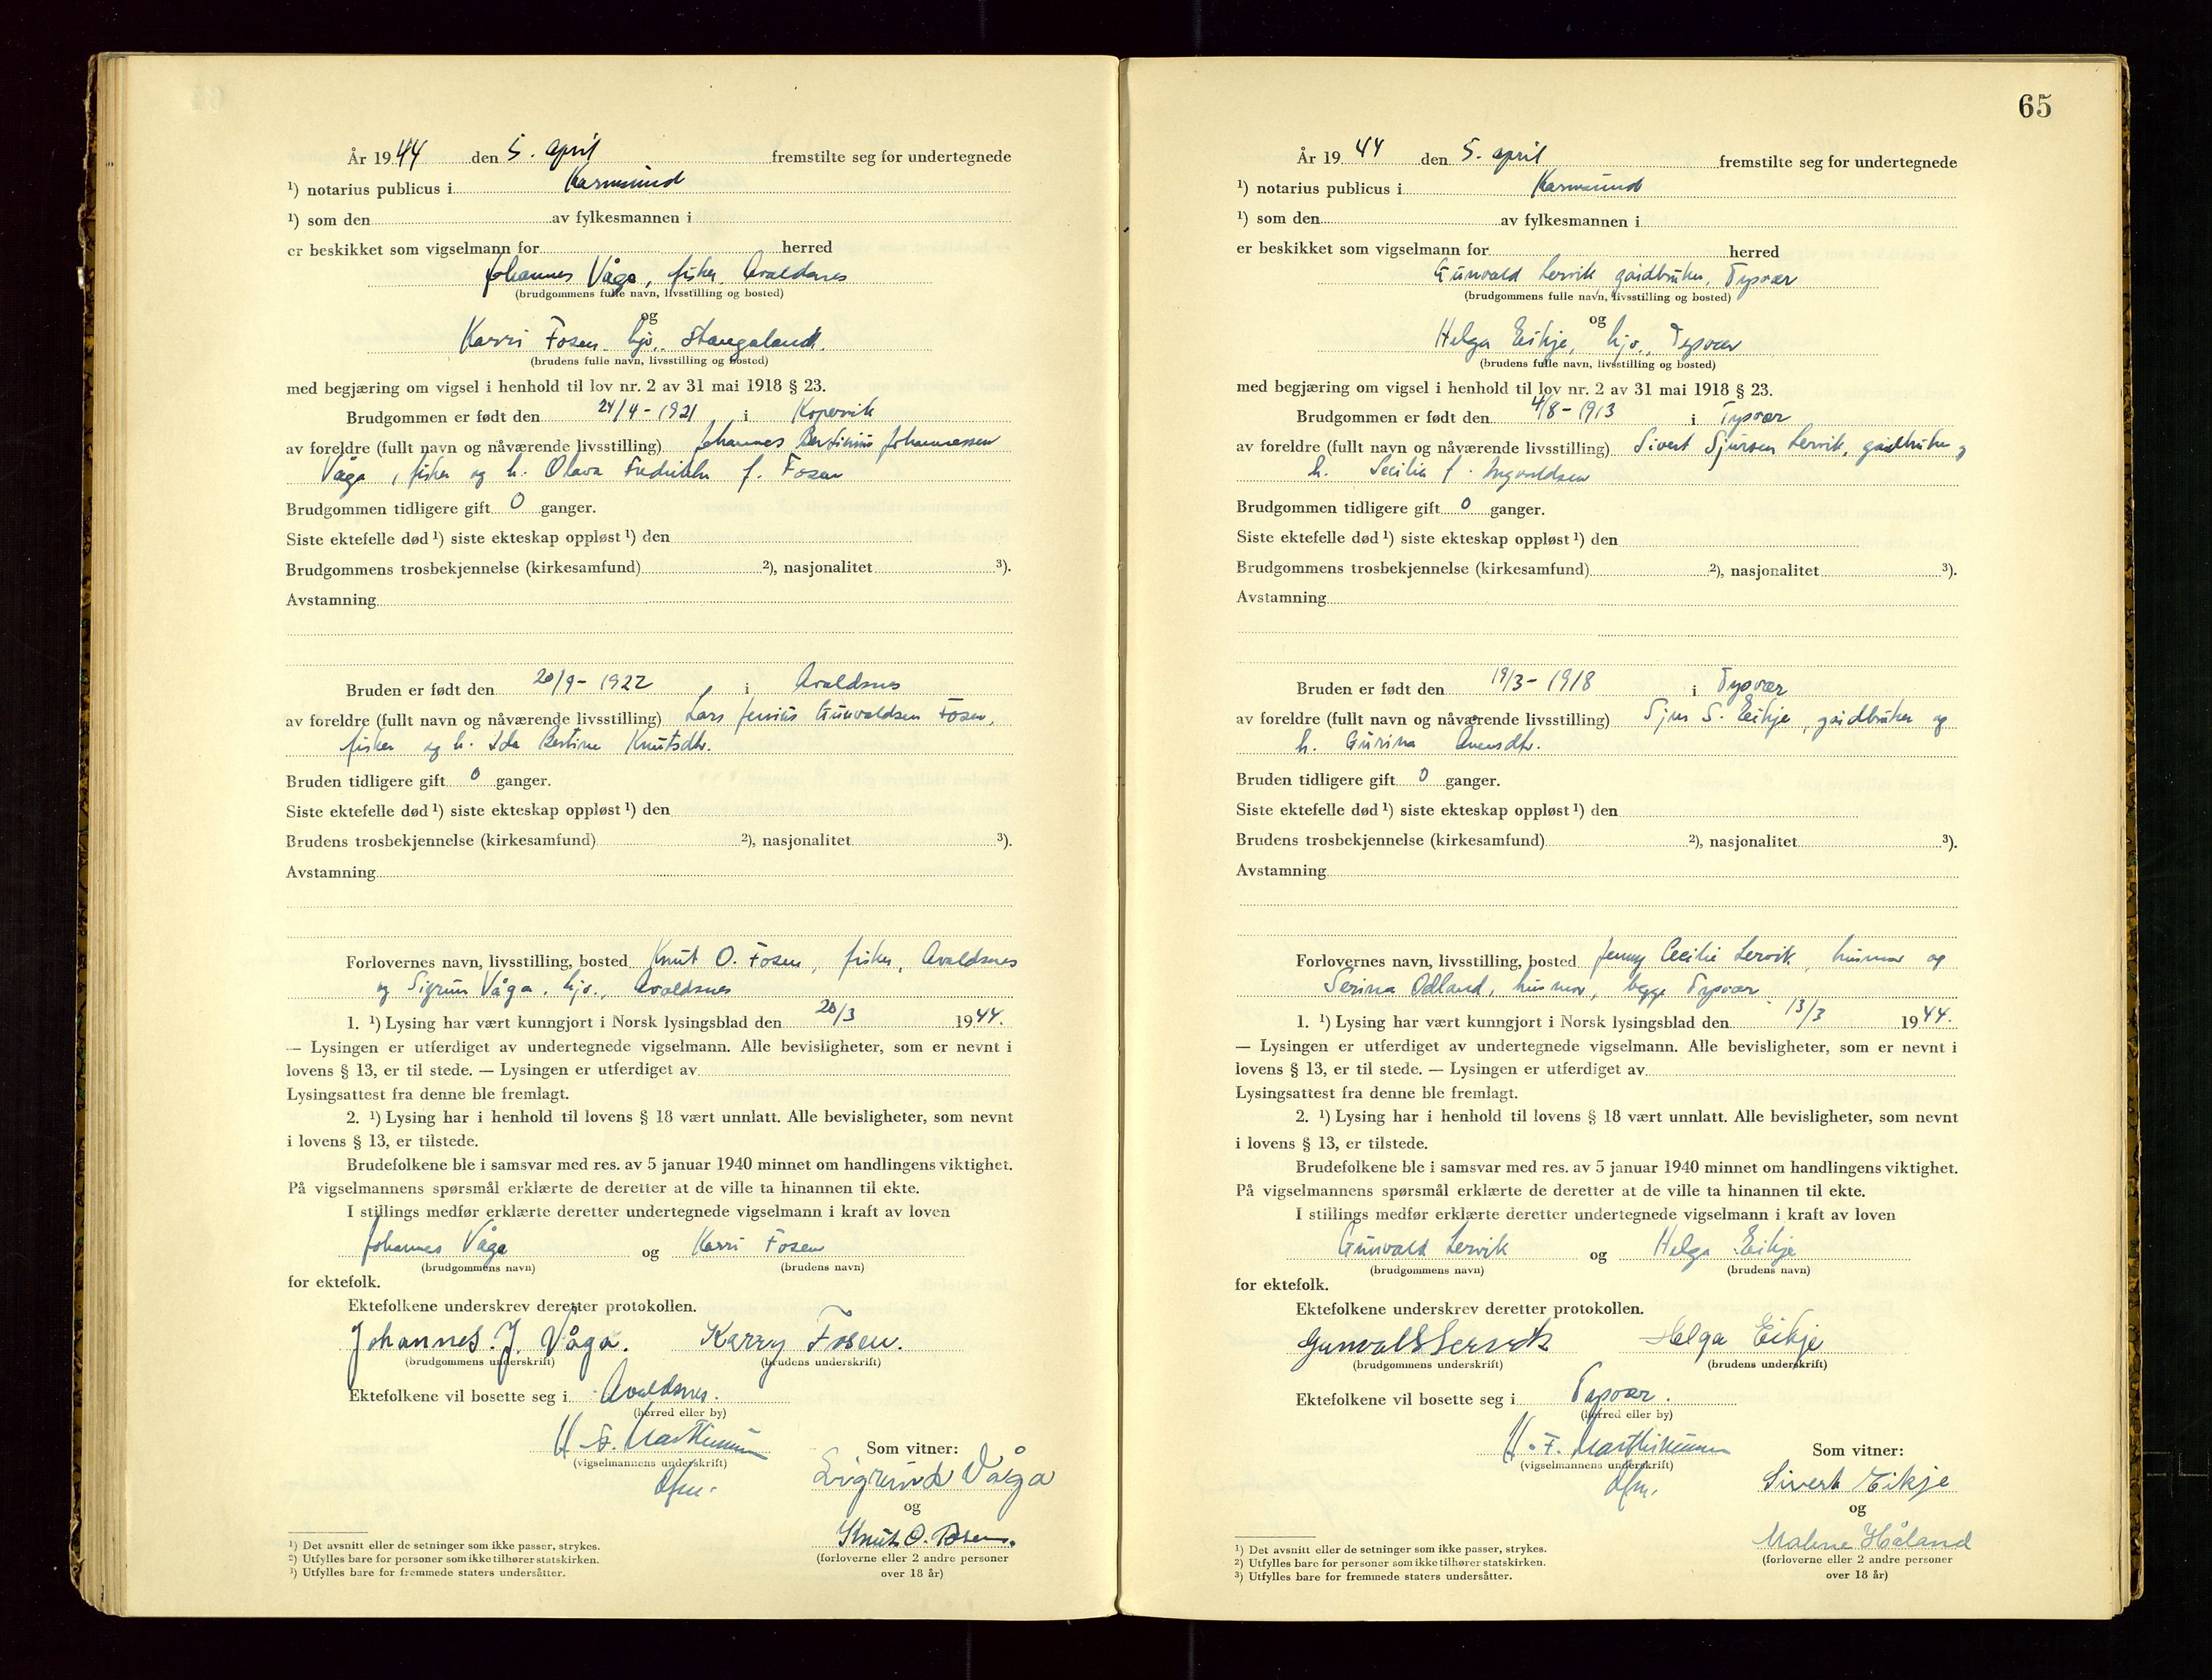 År 1944 den 5. april fremstilte seg for undertegnede
¹) notarius publicus i Karmsund
¹) som den av fylkesmannen i
er beskikket som vigselmann for herred
Johannes Våga, fisker, Avaldsnes
(brudgommens fulle navn, livsstilling og bosted)
og
Karri Fosen hjv., Stangaland.
(brudens fulle navn, livsstilling og bosted)
med begjæring om vigsel i henhold til lov nr. 2 av 31 mai 1918 § 23.
Brudgommen er født den 24/4 - 1921 i Kopervik
av foreldre (fullt navn og nåværende livsstilling) Johannes Bertinius Johannessen
Våga, fisker og h. Olava Fredrikke f. Fosen
Brudgommen tidligere gift 0 ganger.
Siste ektefelle død ¹) siste ekteskap oppløst ¹) den
Brudgommens trosbekjennelse (kirkesamfund) ²), nasjonalitet ³).
Avstamning
Bruden er født den 20/9 - 1922 i Avaldsnes
av foreldre (fullt navn og nåværende livsstilling) Lars Jenius Gunvaldsen Fosen,
fisker og h. Ida Bertine Knutsdtr.
Bruden tidligere gift 0 ganger.
Siste ektefelle død ¹) siste ekteskap oppløst ¹) den
Brudens trosbekjennelse (kirkesamfund) ²), nasjonalitet ³).
Avstamning
Forlovernes navn, livsstilling, bosted Knut O. Fosen, fisker, Avaldsnes
og Sigrun Våga, hjv., Avaldsnes
1. ¹) Lysing har vært kunngjort i Norsk lysingsblad den 20/3 1944.
— Lysingen er utferdiget av undertegnede vigselmann. Alle bevisligheter, som er nevnt i
lovens § 13, er til stede. — Lysingen er utferdiget av
Lysingsattest fra denne ble fremlagt.
2. ¹) Lysing har i henhold til lovens § 18 vært unnlatt. Alle bevisligheter, som nevnt
i lovens § 13, er tilstede.
Brudefolkene ble i samsvar med res. av 5 januar 1940 minnet om handlingens viktighet.
På vigselmannens spørsmål erklærte de deretter at de ville ta hinannen til ekte.
I stillings medfør erklærte deretter undertegnede vigselmann i kraft av loven
Johannes Våga og Karri Fosen
(brudgommens navn) (brudens navn)
for ektefolk.
Ektefolkene underskrev deretter protokollen.
Johannes. J. Våga. Karry Fosen.
(brudgommens underskrift) (brudens underskrift)
Ektefolkene vil bosette seg i Avaldsnes.
(herred eller by)
(vigselmannens underskrift)
Som vitner:
Sigrund Våga
og
Knut O. Fosen.
(forloverne eller 2 andre personer
over 18 år)
¹) Det avsnitt eller de setninger som ikke passer, strykes.
²) Utfylles bare for personer som ikke tilhører statskirken.
³) Utfylles bare for fremmede staters undersåtter.
65
År 1944 den 5. april fremstilte seg for undertegnede
¹) notarius publicus i Karmsund
¹) som den av fylkesmannen i
er beskikket som vigselmann for herred
Gunvald Lervik gardbruker, Tysvær
(brudgommens fulle navn, livsstilling og bosted)
og
Helga Eikje, hjv., Tysvær
(brudens fulle navn, livsstilling og bosted)
med begjæring om vigsel i henhold til lov nr. 2 av 31 mai 1918 § 23.
Brudgommen er født den 4/8 - 1913 i Tysvær
av foreldre (fullt navn og nåværende livsstilling) Sivert Sjursen Lervik, gardbruker og
h. Secilie f. Ingvaldsen
Brudgommen tidligere gift 0 ganger.
Siste ektefelle død ¹) siste ekteskap oppløst ¹) den
Brudgommens trosbekjennelse (kirkesamfund) ²), nasjonalitet ³).
Avstamning
Bruden er født den 19/3 - 1918 i Tysvær
av foreldre (fullt navn og nåværende livsstilling) Sjur S. Eikje, gardbruker og
h. Gurina
Bruden tidligere gift 0 ganger.
Siste ektefelle død ¹) siste ekteskap oppløst ¹) den
Brudens trosbekjennelse (kirkesamfund) ²), nasjonalitet ³).
Avstamning
Forlovernes navn, livsstilling, bosted Jenny Cecilie Lervik, husmor og
Serina Odland, husmor, begge Tysvær
1. ¹) Lysing har vært kunngjort i Norsk lysingsblad den 13/3 1944.
— Lysingen er utferdiget av undertegnede vigselmann. Alle bevisligheter, som er nevnt i
lovens § 13, er til stede. — Lysingen er utferdiget av
Lysingsattest fra denne ble fremlagt.
2. ¹) Lysing har i henhold til lovens § 18 vært unnlatt. Alle bevisligheter, som nevnt
i lovens § 13, er tilstede.
Brudefolkene ble i samsvar med res. av 5 januar 1940 minnet om handlingens viktighet.
På vigselmannens spørsmål erklærte de deretter at de ville ta hinannen til ekte.
I stillings medfør erklærte deretter undertegnede vigselmann i kraft av loven
Gunvald Lervik og Helga Eikje
(brudgommens navn) (brudens navn)
for ektefolk.
Ektefolkene underskrev deretter protokollen.
Gunvald Lervik Helga Eikje
(brudgommens underskrift) (brudens underskrift)
Ektefolkene vil bosette seg i Tysvær.
(herred eller by)
(vigselmannens underskrift)
Som vitner:
Sivert Eikje
og
Malene Håland
(forloverne eller 2 andre personer
over 18 år)
¹) Det avsnitt eller de setninger som ikke passer, strykes.
²) Utfylles bare for personer som ikke tilhører statskirken.
³) Utfylles bare for fremmede staters undersåtter.